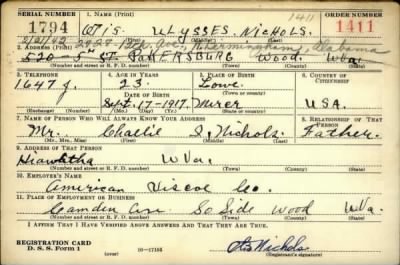 SERIAL NUMBER
ORDER NUMBER
1411
1794 OTIS ULYSSES. NICHOLS. 1411
2. Address (Print)
5/21/42 2427 Ave, N. Birmingham, Alabama
520 - 5th ST. PARKERSBURG WOOD. W.Va.
(Number and street or R. F. D. number) (Town) (County) (State)
3. TELEPHONE 4. AGE IN YEARS 5. PLACE OF BIRTH 6. COUNTRY OF CITIZENSHIP
1647 J. 23 Lowe.
DATE OF BIRTH (Town or county)
Sept. 17-1917. USA.
(Exchange) (No.) (Mo.) (Day) (Yr.) (State or country)
7. NAME OF PERSON WHO WILL ALWAYS KNOW YOUR ADDRESS 8. RELATIONSHIP OF THAT PERSON
Mr. Charlie S. Nichols. Father.
(Mr., Mrs., Miss) (First) (Middle) (Last)
9. ADDRESS OF THAT PERSON
Hiawatha W.Va.
(Number and street or R. F. D. number) (Town) (County) (State)
10. EMPLOYER'S NAME
American Viscose Co.
11. PLACE OF EMPLOYMENT OR BUSINESS
Camden Ave So Side Wood W.Va.
(Number and street or R. F. D. number) (Town) (County) (State)
I AFFIRM THAT I HAVE VERIFIED ABOVE ANSWERS AND THAT THEY ARE TRUE.
REGISTRATION CARD
D. S. S. Form 1 16-17105 Nichols
(Registrant's signature)